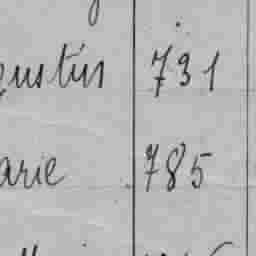 gustin 731
arie 785